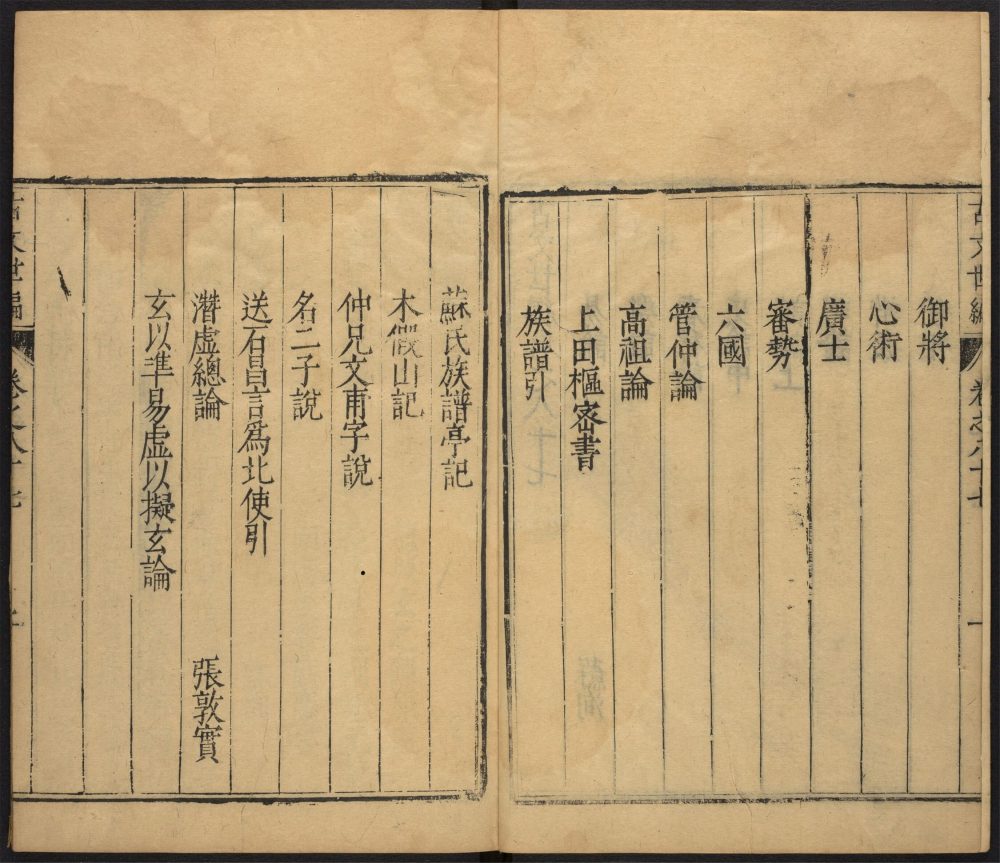 古文世編
卷之六十七
一
御將
心術
廣士
審勢
六國
管仲論
高祖論
上田樞密書
族譜引
蘇氏族譜亭記
木假山記
仲兄文甫字說
名二子說
送石昌言爲北使引
潛虛總論
張敦實
玄以準易虛以擬玄論
古文世編